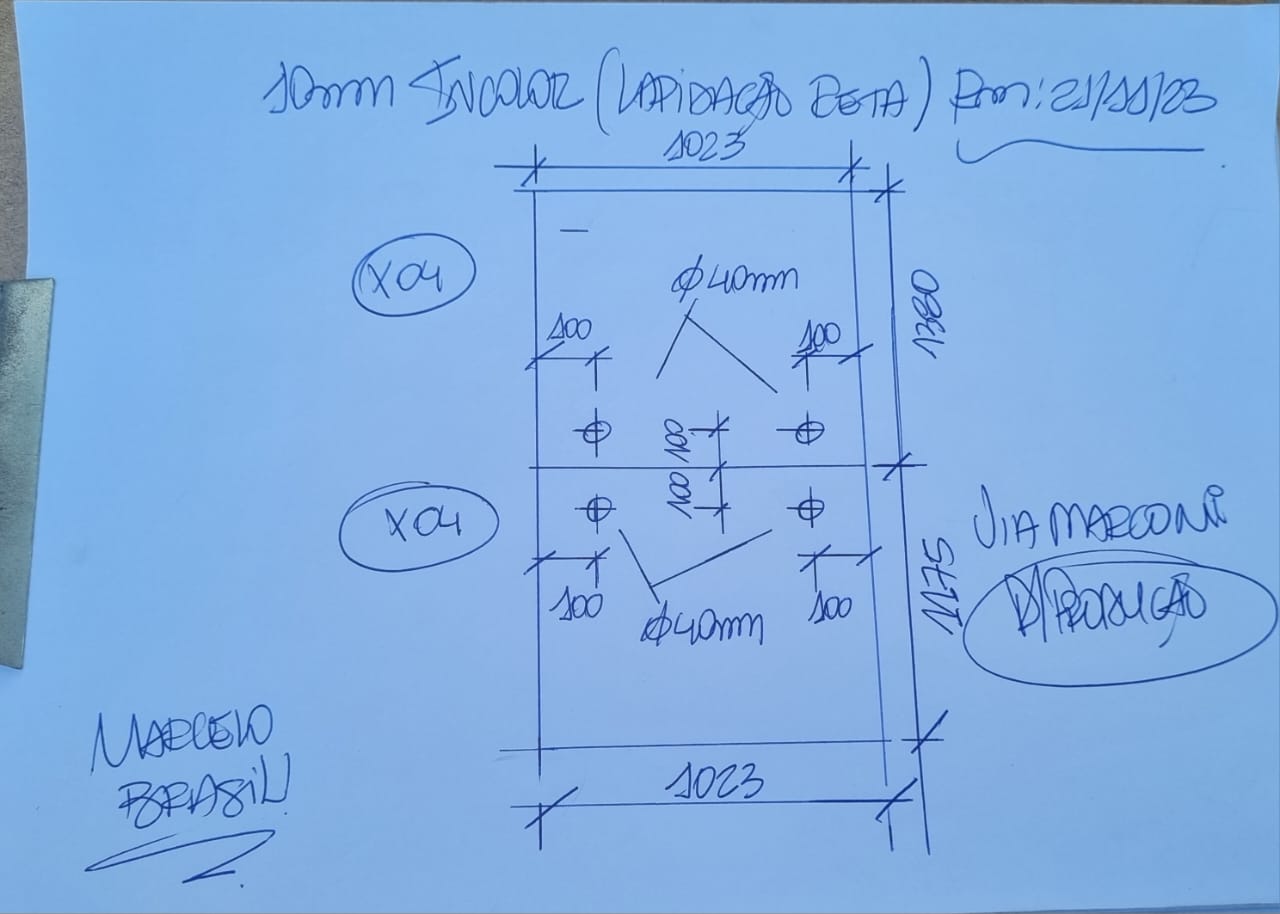 10mm INCOLOR (LAPIDAÇÃO RETA) Em: 21/11/23
1023
X04
Ø40mm
100
100
1380
100
100
X04
VIA MARCONI
P/PRODUÇÃO
1175
100
Ø40mm
100
MARCELO
BRASIL
1023